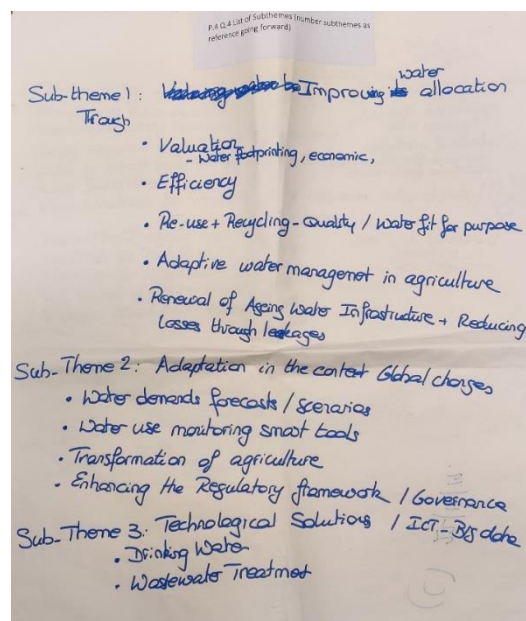 P.4 Q.4 List of Subthemes (number subthemes as
reference going forward)
Sub-theme 1: Improving water allocation
Trough
• Valuation
- Water footprinting, economic,
• Efficiency
• Re-use + Recycling - Quality / Water fit for purpose
• Adaptive water managemet in agriculture
• Renewal of Ageing Water Infrastructure + Reducing
losses through leakages
Sub-Theme 2: Adaptation in the context Global changes
• Water demands forecasts / scenarios
• Water use monitoring smart tools
• Transformation of agriculture
• Enhancing the Regulatory framework / Governance
Sub-Theme 3: Technological Solutions / ICT - Big data
• Drinking Water
• Wastewater Treatmet